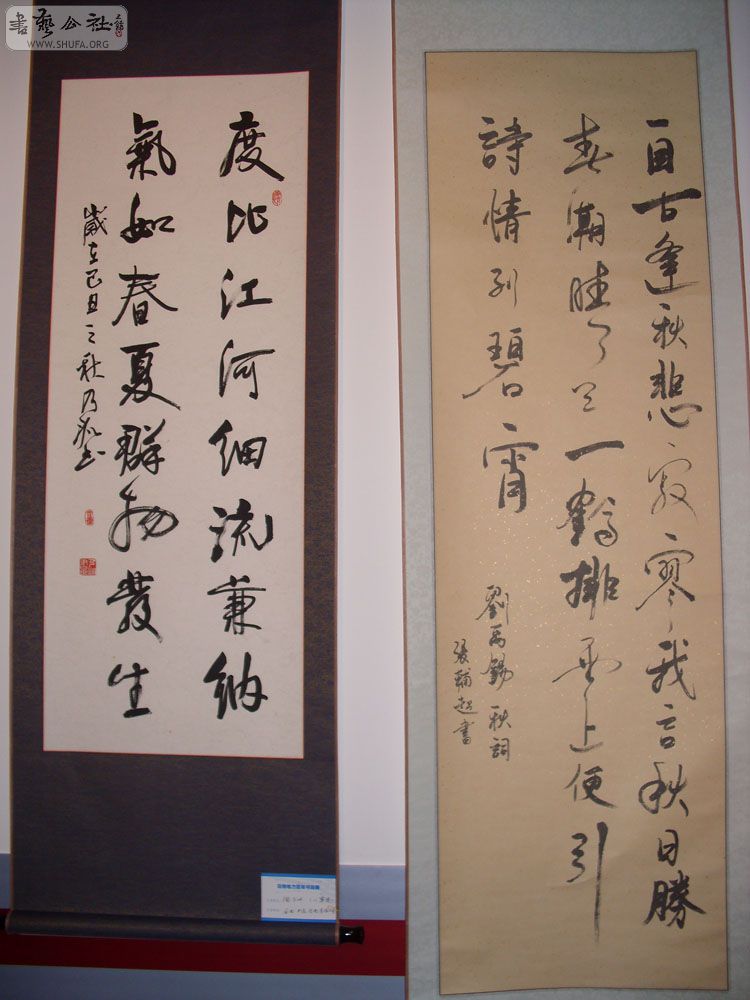 書藝公社
WWW.SHUFA.ORG
自古逢秋悲寂寥我言秋日勝
春潮晴空一鶴排雲上便引
詩情到碧霄
劉禹錫秋詞
張輔起書
度比江河細流兼納
氣如春夏群物發生
歲在己丑之秋乃書